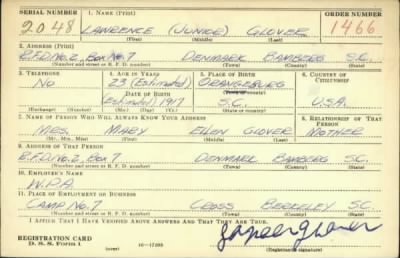 SERIAL NUMBER 1. NAME (Print) ORDER NUMBER
2048 LAWRENCE (JUNICE) GLOVER 1466
(First) (Middle) (Last)
2. ADDRESS (Print)
R.F.D. No. 2, Box No. 7 DENMARK BAMBERG S.C.
(Number and street or R. F. D. number) (Town) (County) (State)
3. TELEPHONE 4. AGE IN YEARS 5. PLACE OF BIRTH 6. COUNTRY OF CITIZENSHIP
No 23 (Estimated) ORANGEBURG
DATE OF BIRTH (Town or county)
(Estimated) 1917 S.C. U.S.A.
(Exchange) (Number) (Mo.) (Day) (Yr.) (State or country)
7. NAME OF PERSON WHO WILL ALWAYS KNOW YOUR ADDRESS 8. RELATIONSHIP OF THAT PERSON
MRS. MARY ELLEN GLOVER MOTHER
(Mr., Mrs., Miss) (First) (Middle) (Last)
9. ADDRESS OF THAT PERSON
R.F.D. No. 2, Box 7 DENMARK BAMBERG S.C.
(Number and street or R. F. D. number) (Town) (County) (State)
10. EMPLOYER'S NAME
W.P.A.
11. PLACE OF EMPLOYMENT OR BUSINESS
CAMP No. 7 CROSS BERKELEY S.C.
(Number and street or R. F. D. number) (Town) (County) (State)
I AFFIRM THAT I HAVE VERIFIED ABOVE ANSWERS AND THAT THEY ARE TRUE.
REGISTRATION CARD
D. S. S. Form 1 16-17105 (Registrant's signature)